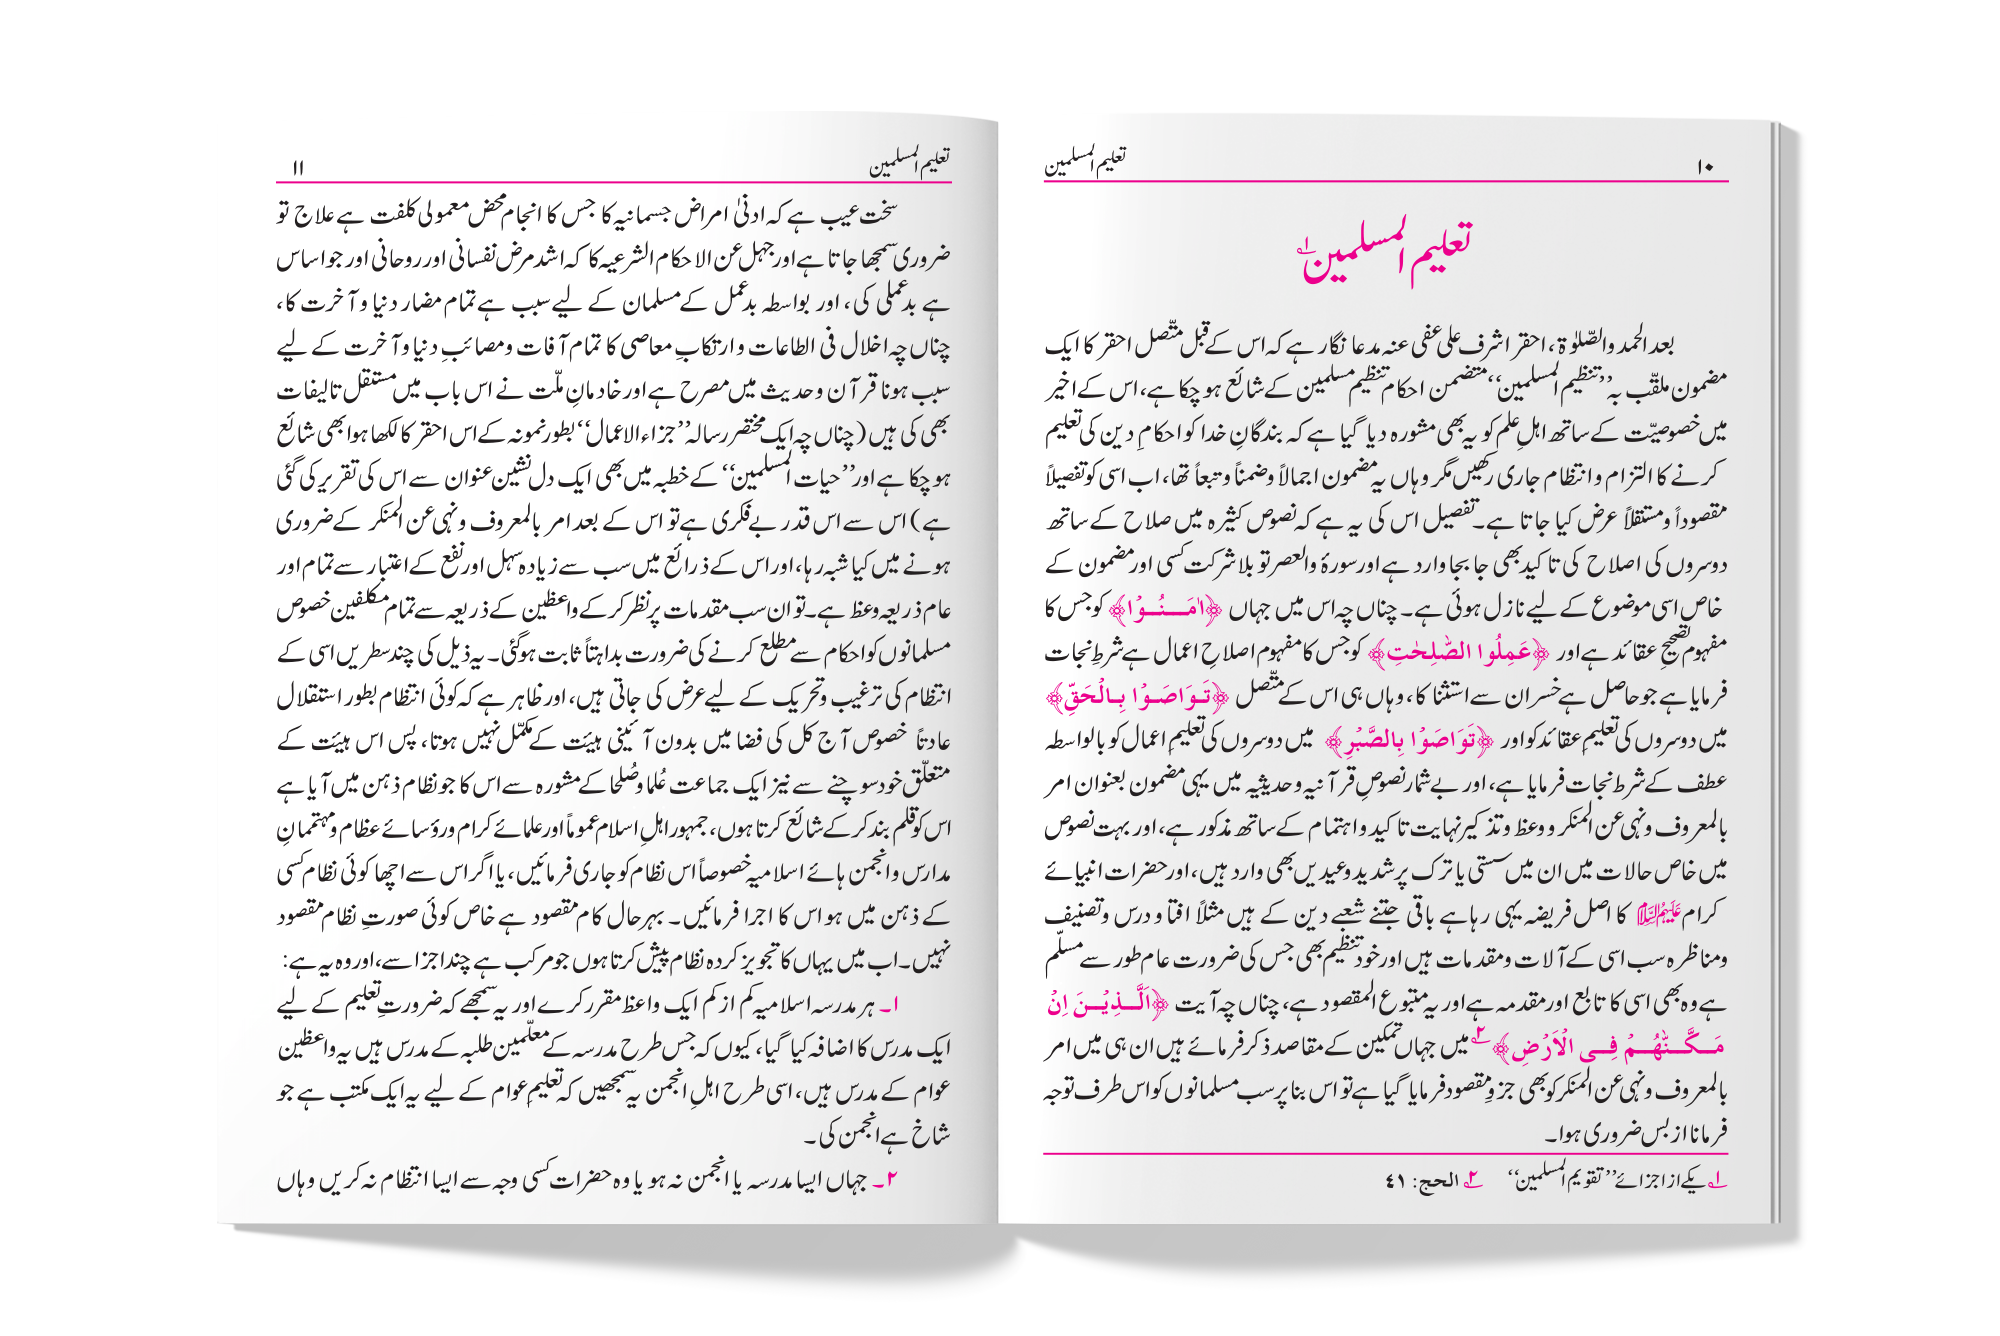 ۱۰ تعلیم المسلمین
تعلیم المسلمین ؎۱
بعد الحمد والصّلوٰۃ، احقر اشرف علی عفی عنہ مدعا نگار ہے کہ اس کے قبل متّصل احقر کا ایک
مضمون ملقّب بہ ’’تنظیم المسلمین‘‘ متضمن احکام تنظیم مسلمین کے شائع ہو چکا ہے، اس کے اخیر
میں خصوصیّت کے ساتھ اہلِ علم کو یہ بھی مشورہ دیا گیا ہے کہ بندگانِ خدا کو احکامِ دین کی تعلیم
کرنے کا التزام و انتظام جاری رکھیں مگر وہاں یہ مضمون اجمالاً وضمناً و تبعاً تھا، اب اسی کو تفصیلاً
مقصوداً و مستقلاً عرض کیا جاتا ہے۔ تفصیل اس کی یہ ہے کہ نصوص کثیرہ میں صلاح کے ساتھ
دوسروں کی اصلاح کی تاکید بھی جابجا وارد ہے اور سورۂ والعصر تو بلا شرکت کسی اور مضمون کے
خاص اسی موضوع کے لیے نازل ہوئی ہے۔ چناں چہ اس میں جہاں ﴿اٰمَنُوْا﴾ کو جس کا
مفہوم تصحیحِ عقائد ہے اور ﴿عَمِلُوا الصّٰلِحٰتِ﴾ کو جس کا مفہوم اصلاحِ اعمال ہے شرطِ نجات
فرمایا ہے جو حاصل ہے خسران سے استثنا کا، وہاں ہی اس کے متّصل ﴿تَوَاصَوْا بِالْحَقِّ﴾
میں دوسروں کی تعلیمِ عقائد کو اور ﴿تَوَاصَوْا بِالصَّبْرِ﴾ میں دوسروں کی تعلیمِ اعمال کو بالواسطہ
عطف کے شرط نجات فرمایا ہے، اور بے شمار نصوصِ قرآنیہ و حدیثیہ میں یہی مضمون بعنوان امر
بالمعروف ونہی عن المنکر و وعظ و تذکیر نہایت تاکید و اہتمام کے ساتھ مذکور ہے، اور بہت نصوص
میں خاص حالات میں ان میں سستی یا ترک پر شدید وعیدیں بھی وارد ہیں، اور حضرات انبیائے
کرام عَلَیْہِمُ السَّلَام کا اصل فریضہ یہی رہا ہے باقی جتنے شعبے دین کے ہیں مثلاً افتا و درس و تصنیف
ومناظرہ سب اسی کے آلات و مقدمات ہیں اور خود تنظیم بھی جس کی ضرورت عام طور سے مسلّم
ہے وہ بھی اسی کا تابع اور مقدمہ ہے اور یہ متبوع المقصود ہے، چناں چہ آیت ﴿اَلَّذِیْنَ اِنْ
مَکَّنّٰہُمْ فِی الْاَرْضِ﴾ ؎۲ میں جہاں تمکین کے مقاصد ذکر فرمائے ہیں ان ہی میں امر
بالمعروف ونہی عن المنکر کو بھی جزوِ مقصود فرمایا گیا ہے تو اس بنا پر سب مسلمانوں کو اس طرف توجہ
فرمانا از بس ضروری ہوا۔
؎۱ یکے از اجزائے ’’تقویم المسلمین‘‘ ؎۲ الحج: ٤١
تعلیم المسلمین ۱۱
سخت عیب ہے کہ ادنیٰ امراض جسمانیہ کا جس کا انجام محض معمولی کلفت ہے علاج تو
ضروری سمجھا جاتا ہے اور جہل عن الاحکام الشرعیہ کا کہ اشد مرض نفسانی اور روحانی اور جو اساس
ہے بدعملی کی، اور بواسطہ بدعمل کے مسلمان کے لیے سبب ہے تمام مضار دنیا و آخرت کا،
چناں چہ اخلال فی الطاعات و ارتکابِ معاصی کا تمام آفات و مصائبِ دنیا و آخرت کے لیے
سبب ہونا قرآن و حدیث میں مصرح ہے اور خادمانِ ملّت نے اس باب میں مستقل تالیفات
بھی کی ہیں (چناں چہ ایک مختصر رسالہ ’’جزاء الاعمال‘‘ بطور نمونہ کے اس احقر کا لکھا ہوا بھی شائع
ہو چکا ہے اور ’’حیات المسلمین‘‘ کے خطبہ میں بھی ایک دل نشین عنوان سے اس کی تقریر کی گئی
ہے) اس سے اس قدر بے فکری ہے تو اس کے بعد امر بالمعروف ونہی عن المنکر کے ضروری
ہونے میں کیا شبہ رہا، اور اس کے ذرائع میں سب سے زیادہ سہل اور نفع کے اعتبار سے تمام اور
عام ذریعہ وعظ ہے۔ تو ان سب مقدمات پر نظر کر کے واعظین کے ذریعہ سے تمام مکلفین خصوص
مسلمانوں کو احکام سے مطلع کرنے کی ضرورت بداہتاً ثابت ہوگئی۔ یہ ذیل کی چند سطریں اسی کے
انتظام کی ترغیب و تحریک کے لیے عرض کی جاتی ہیں، اور ظاہر ہے کہ کوئی انتظام بطور استقلال
عادتاً خصوص آج کل کی فضا میں بدون آئینی ہیئت کے مکمّل نہیں ہوتا، پس اس ہیئت کے
متعلّق خود سوچنے سے نیز ایک جماعت عُلما و صُلحا کے مشورہ سے اس کا جو نظام ذہن میں آیا ہے
اس کو قلم بند کر کے شائع کرتا ہوں، جمہور اہلِ اسلام عموماً اور علمائے کرام و رؤسائے عظام و مہتمانِ
مدارس و انجمن ہائے اسلامیہ خصوصاً اس نظام کو جاری فرمائیں، یا اگر اس سے اچھا کوئی نظام کسی
کے ذہن میں ہو اس کا اجرا فرمائیں۔ بہرحال کام مقصود ہے خاص کوئی صورتِ نظام مقصود
نہیں۔ اب میں یہاں کا تجویز کردہ نظام پیش کرتا ہوں جو مرکب ہے چند اجزا سے، اور وہ یہ ہے:
۱۔ ہر مدرسہ اسلامیہ کم از کم ایک واعظ مقرر کرے اور یہ سمجھے کہ ضرورتِ تعلیم کے لیے
ایک مدرس کا اضافہ کیا گیا، کیوں کہ جس طرح مدرسہ کے معلّمین طلبہ کے مدرس ہیں یہ واعظین
عوام کے مدرس ہیں، اسی طرح اہلِ انجمن یہ سمجھیں کہ تعلیمِ عوام کے لیے یہ ایک مکتب ہے جو
شاخ ہے انجمن کی۔
۲۔ جہاں ایسا مدرسہ یا انجمن نہ ہو یا وہ حضرات کسی وجہ سے ایسا انتظام نہ کریں وہاں